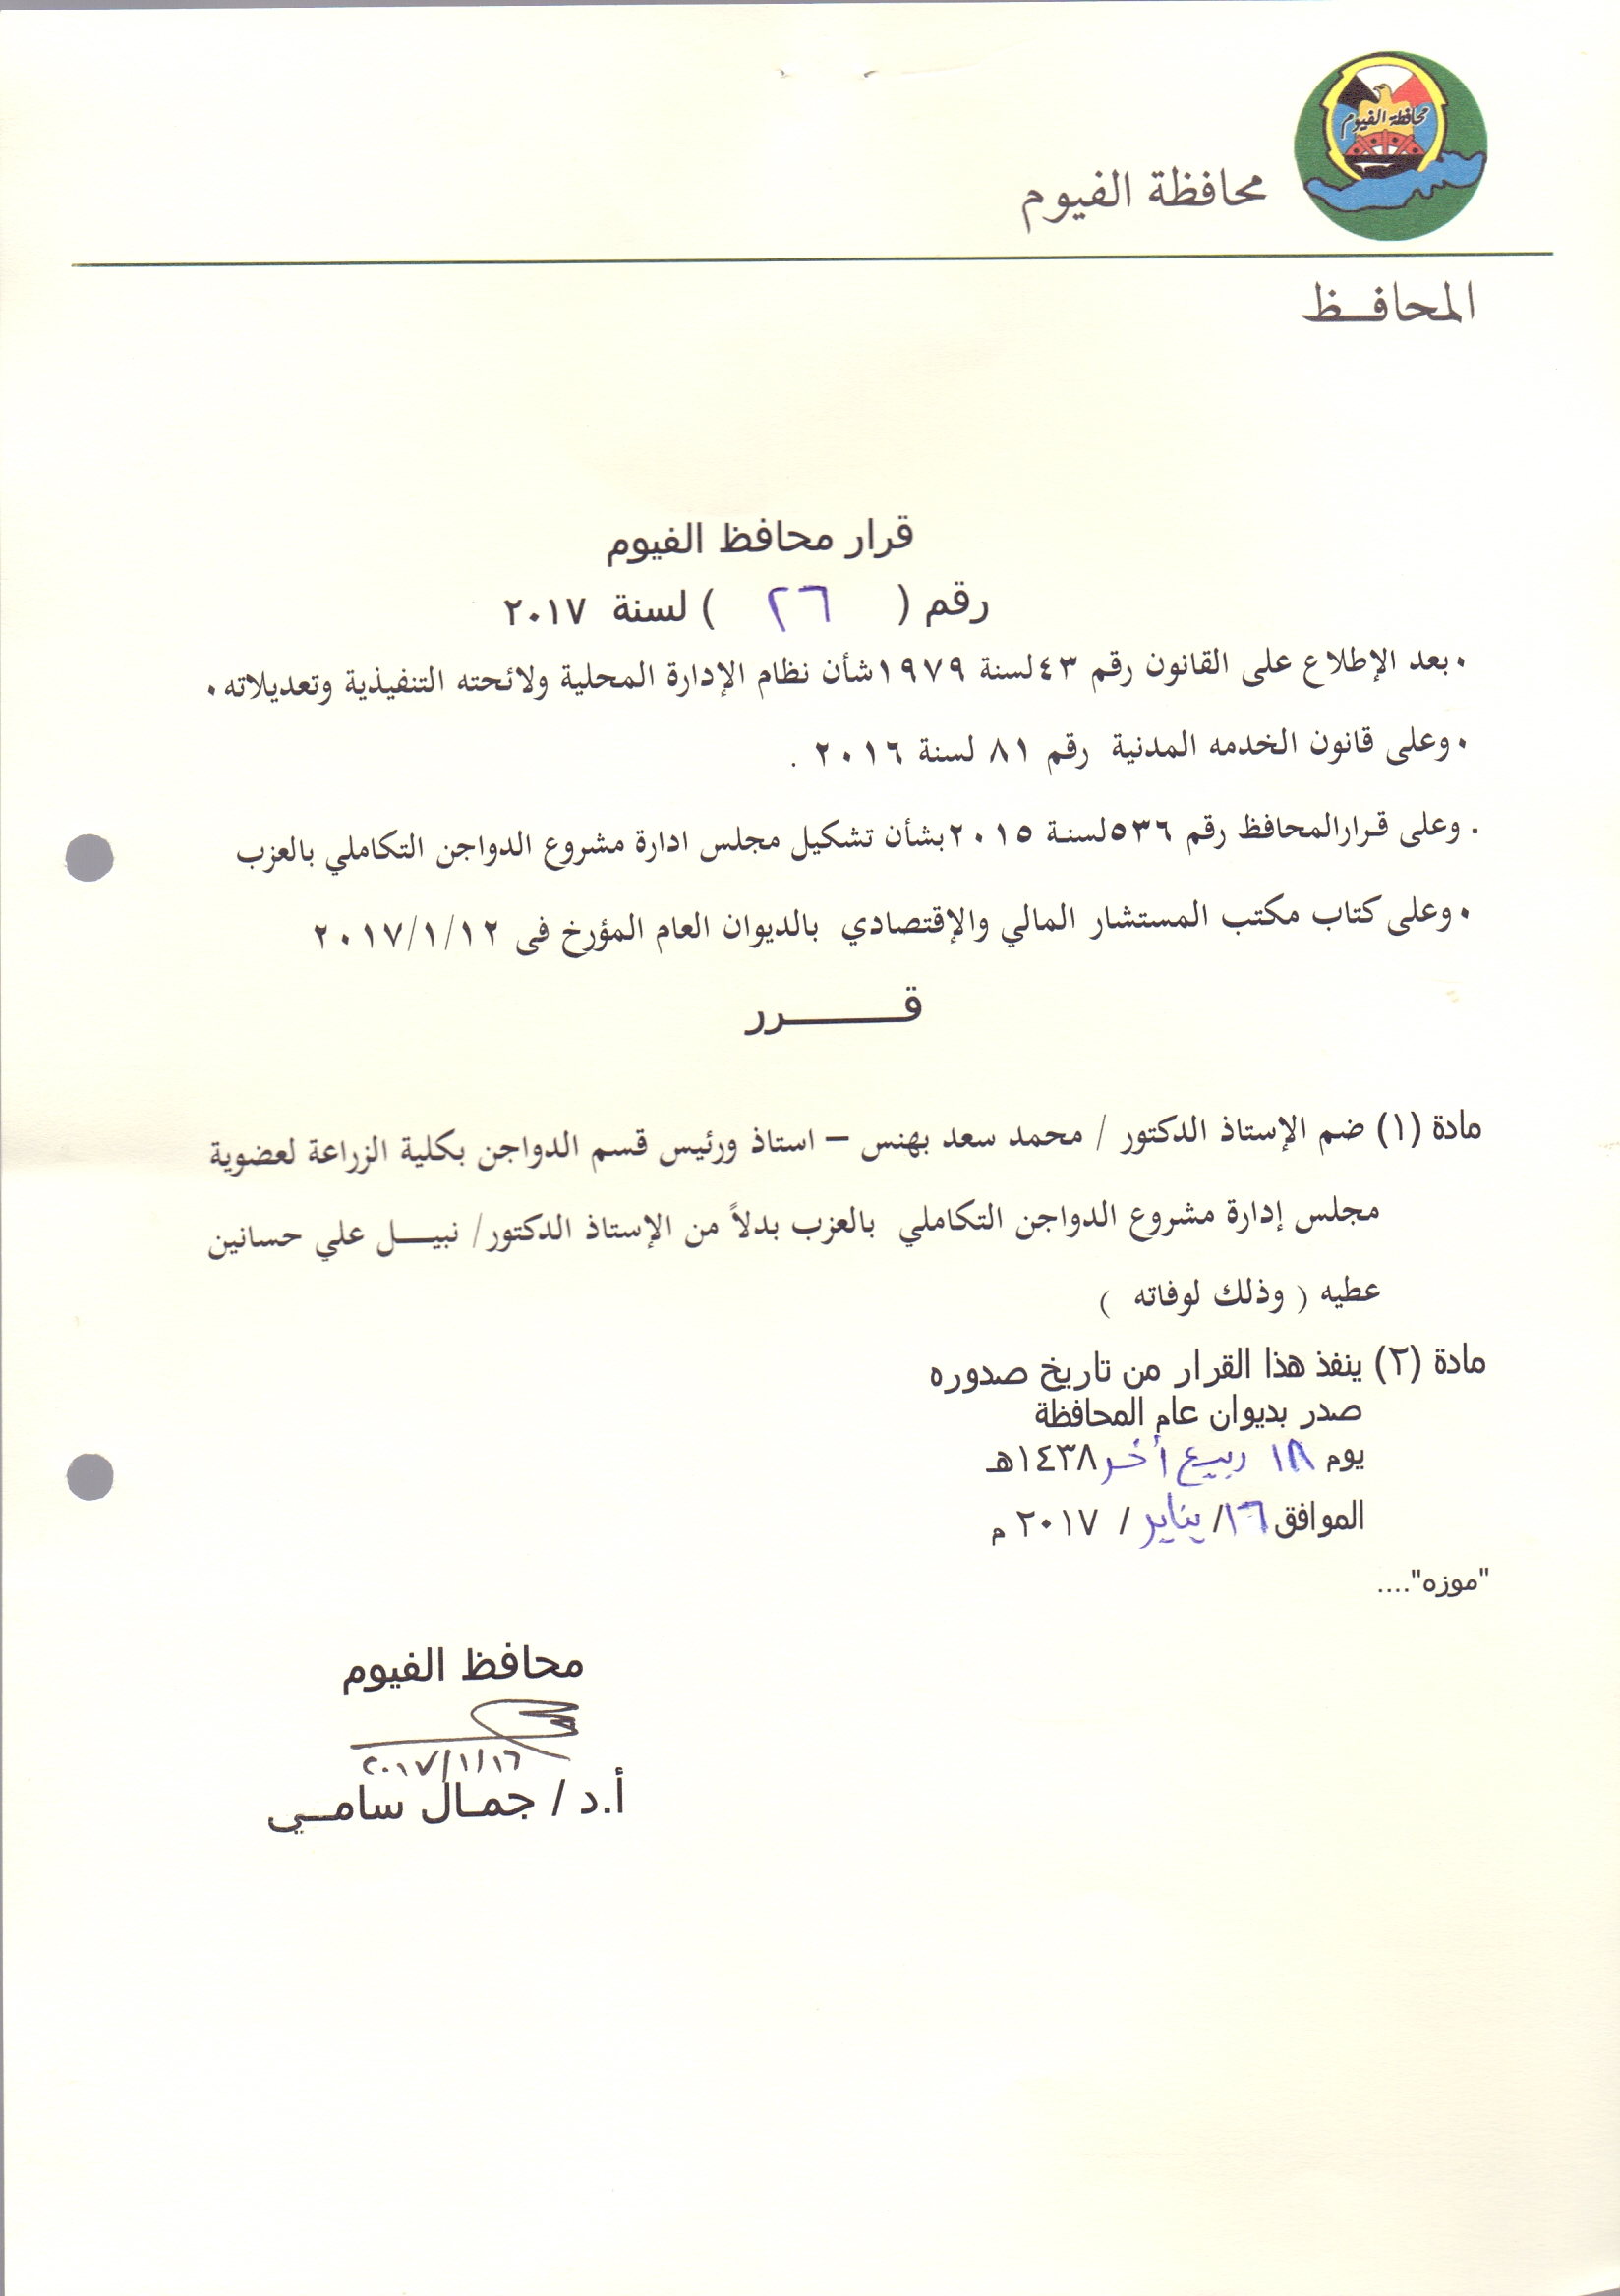 محافظة الفيوم
محافظة الفيوم
المحافـــظ
قرار محافظ الفيوم
رقم ( ٢٦ ) لسنة ٢٠١٧
٠ بعد الإطلاع على القانون رقم ٤٣ لسنة ١٩٧٩ شأن نظام الإدارة المحلية ولائحته التنفيذية وتعديلاته ٠
٠ وعلى قانون الخدمه المدنية رقم ٨١ لسنة ٢٠١٦ .
. وعلى قرار المحافظ رقم ٥٣٦ لسنة ٢٠١٥ بشأن تشكيل مجلس ادارة مشروع الدواجن التكاملي بالعزب
٠ وعلى كتاب مكتب المستشار المالي والإقتصادي بالديوان العام المؤرخ فى ٢٠١٧/١/١٢
قـــــــرر
مادة (١) ضم الإستاذ الدكتور / محمد سعد بهنس – استاذ ورئيس قسم الدواجن بكلية الزراعة لعضوية
مجلس إدارة مشروع الدواجن التكاملي بالعزب بدلاً من الإستاذ الدكتور/ نبيـــل علي حسانين
عطيه ( وذلك لوفاته )
مادة (٢) ينفذ هذا القرار من تاريخ صدوره
صدر بديوان عام المحافظة
يوم ١٨ ربيع أخر ١٤٣٨هـ
الموافق ١٦/ يناير / ٢٠١٧ م
"موزه"....
محافظ الفيوم
٢٠١٧/١/١٦
أ.د / جمـال سامـــي